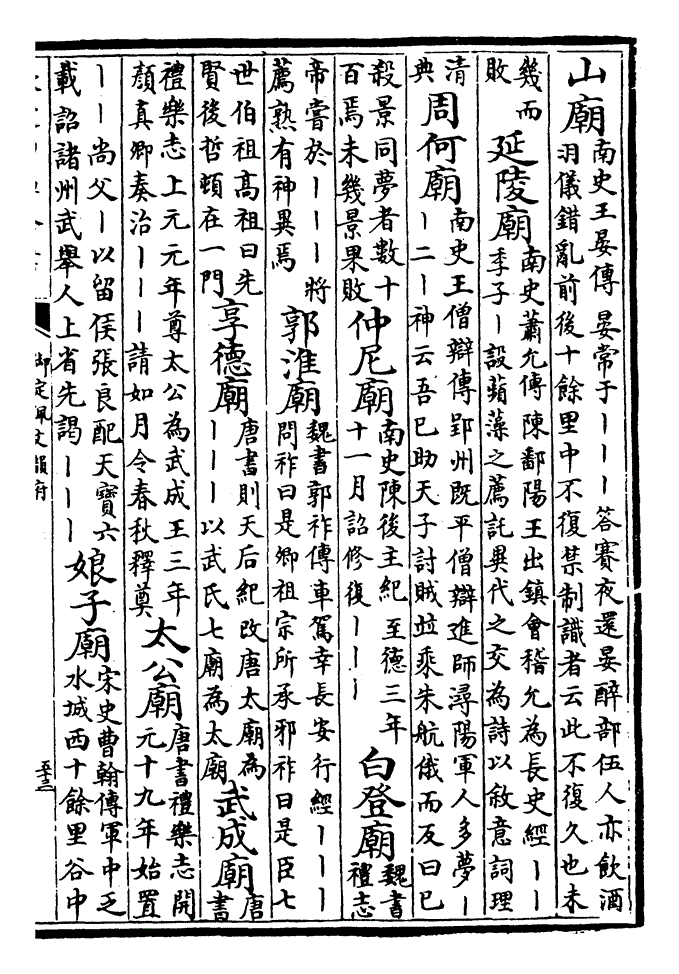 山廟南史王晏傳晏常于丨丨丨答賽夜還晏醉部伍人亦飲酒
羽儀錯亂前後十餘里中不復禁制識者云此不復久也未
幾而
敗
延陵廟南史蕭允傳陳鄱陽王出鎮會稽允為長史經丨丨
季子丨設蘋藻之薦託異代之交為詩以敘意詞理
清
典
周何廟南史王僧辯傳郢州既平僧辯進師潯陽軍人多夢丨
丨二丨神云吾已助天子討賊竝乘朱航俄而反曰已
殺景同夢者數十
百焉未幾景果敗
仲尼廟南史陳後主紀至德三年
十一月詔修復丨丨丨
白登廟魏書
禮志
帝嘗於丨丨丨將
薦熟有神異焉
郭淮廟魏書郭祚傳車駕幸長安行經丨丨丨
問祚曰是卿祖宗所承邪祚曰是臣七
世伯祖高祖曰先
賢後哲頓在一門
享德廟唐書則天后紀改唐太廟為
丨丨丨以武氏七廟為太廟
武成廟唐
書
禮樂志上元元年尊太公為武成王三年
顏真卿奏治丨丨丨請如月令春秋釋奠
太公廟唐書禮樂志開
元十九年始置
丨丨尚父丨以留侯張良配天寶六
載詔諸州武舉人上省先謁丨丨丨
娘子廟宋史曹翰傳軍中乏
水城西十餘里谷中
御定佩文韻府
五十三